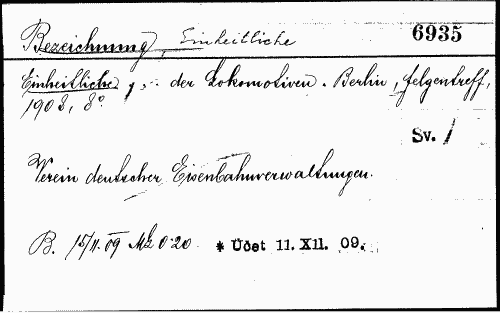 Bezeichnung, Einheitliche
6935
Einheitliche, der Lokomotiven. Berlin, Felgentreff,
1908, 8°
Sv. 1
Verein deutscher Eisenbahnverwaltungen.
B. 15/11. 09 Mk 0·20. * Účet 11. XII. 09.